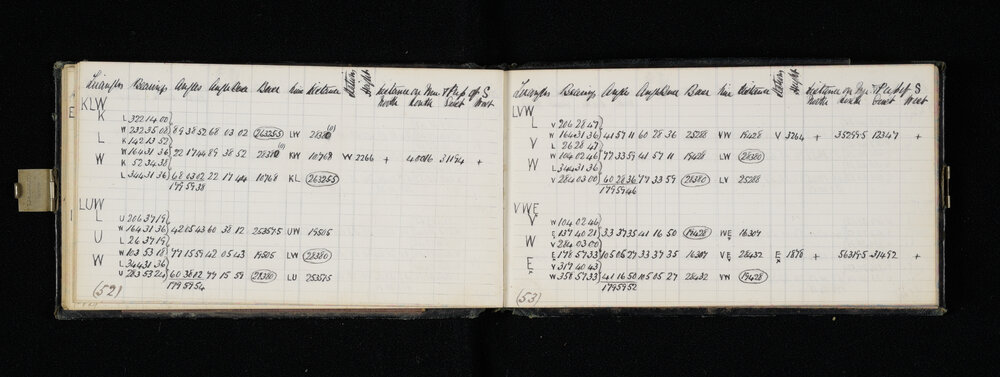 Triangles Bearings Angles Angle Base Base Line Distance Station Height Distance on Mer + Perp of S
North South East West
KLW
K
L 322 14 00
W 232 35 08 89 38 52 68 03 02 26325.5 LW 28380 (0)
L
K 142 13 52
W 164 31 36 22 17 44 89 38 52 28380 (0) KW 10768 W 2266 + 40016 31194 +
W
K 52 34 38
L 344 31 36 68 03 02 22 17 44 10768 KL 26325.5
179 59 38
LUW
L
U 206 37 19
W 164 31 36 42 05 43 60 38 12 25357.5 UW 19505
U
L 26 37 19
W 103 53 18 77 15 59 42 05 43 19505 LW 28380
W
L 344 31 36
U 283 53 24 60 38 12 77 15 59 28380 LU 25357.5
179 59 54
(52)
Triangles Bearings Angles Angle Base Base Line Distance Station Height Distance on Mer + Perp of S
North South East West
LVW
L
V 206 28 47
W 164 31 36 41 57 11 60 28 36 25288 VW 19428 V 3264 + 35299.5 12347 +
V
L 26 28 47
W 104 02 46 77 33 59 41 57 11 19428 LW 28380
W
L 344 31 36
V 284 03 00 60 28 36 77 33 59 28380 LV 25288
179 59 46
VWE
V
W 104 02 46
E 137 40 21 33 37 35 41 16 50 19428 WE 16307
W
V 284 03 00
E 178 57 33 105 05 27 33 37 35 16307 VE 28432 E 1878 + 56319.5 31492 +
E
V 317 40 43
W 358 57 33 41 16 50 105 05 27 28432 VW 19428
179 59 52
(53)